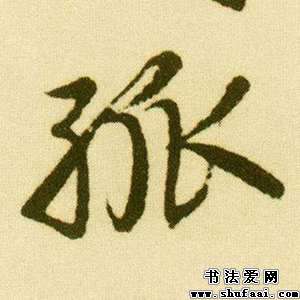 孤
书法爱网
www.shufaai.com